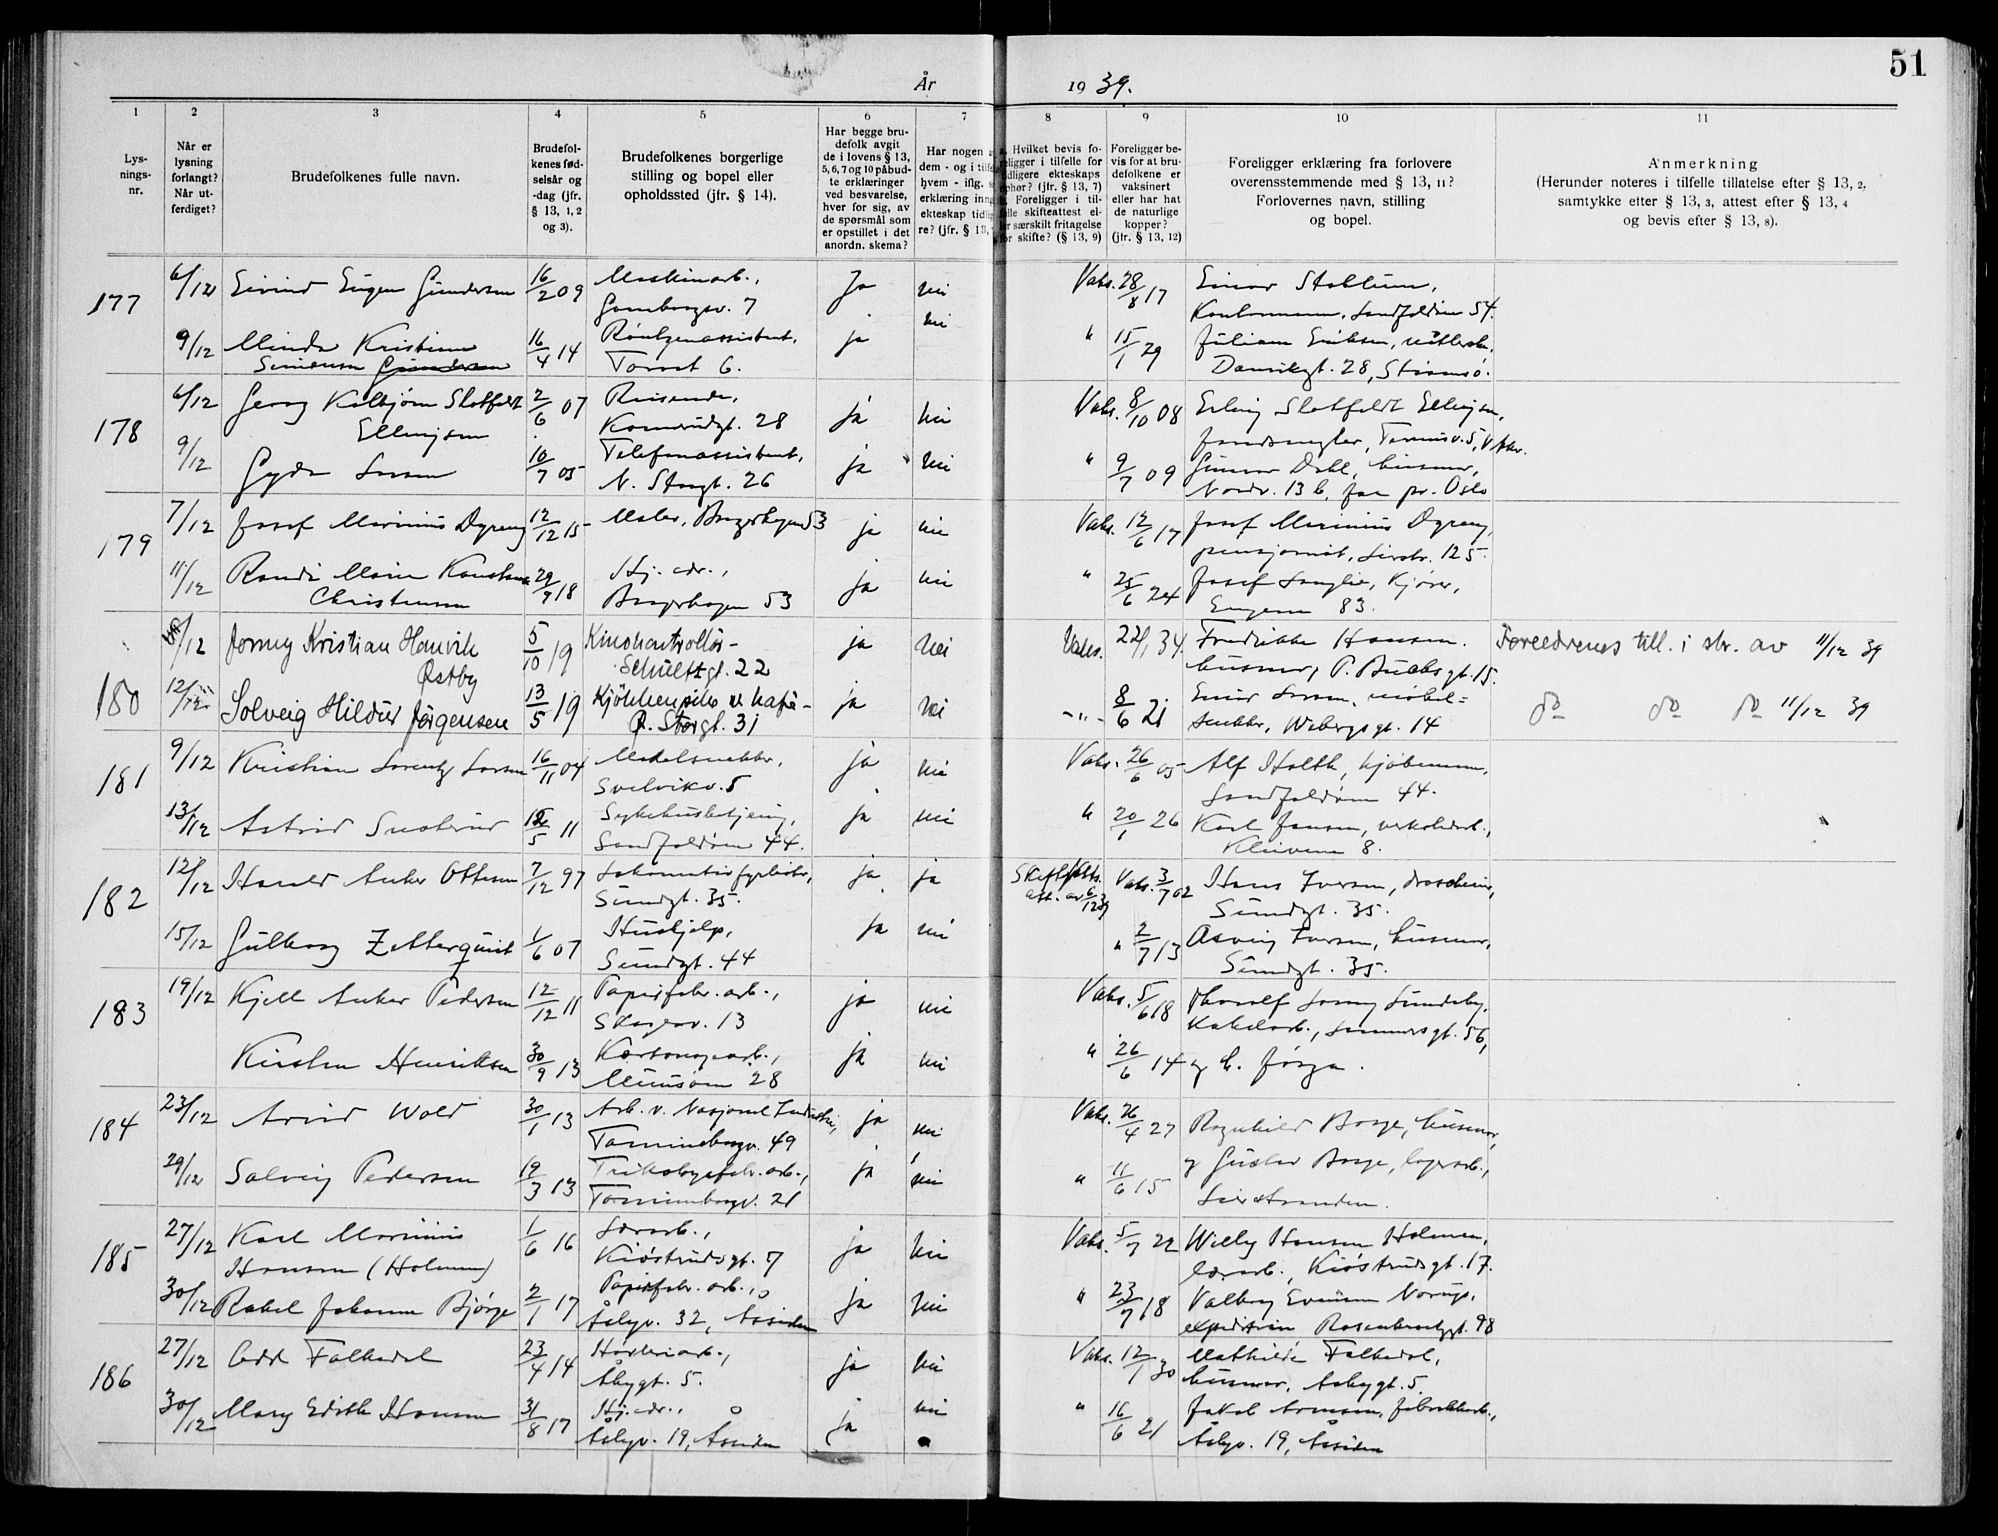 51
År 1939.
1 2 3 4 5 6 7 8 9 10 11
Lysningsnr.
Når er lysning forlangt? Når utferdiget?
Brudefolkenes fulle navn.
Brudefolkenes fødselsår og -dag (jfr. § 13, 1, 2 og 3).
Brudefolkenes borgerlige stilling og bopel eller opholdssted (jfr. § 14).
Har begge brudefolk avgit de i lovens § 13, 5, 6, 7 og 10 påbudte erklæringer ved besvarelse, hver for sig, av de spørsmål som er opstillet i det anordn. skema?
Har nogen a
dem - og i tilf
hvem - iflg. s
erklæring inng
ekteskap tidlig
re? (jfr. § 13,
Hvilket bevis fo-
religger i tilfelle for
idligere ekteskaps
ophør? (jfr. § 13, 7)
Foreligger i til-
felle skifteattest el-
særskilt fritagelse
for skifte? (§ 13, 9)
Foreligger bevis for at brudefolkene er vaksinert eller har hat de naturlige kopper? (jfr. § 13, 12)
Foreligger erklæring fra forlovere overensstemmende med § 13, 11? Forlovernes navn, stilling og bopel.
Anmerkning
(Herunder noteres i tilfelle tillatelse efter § 13, 2, samtykke efter § 13, 3, attest efter § 13, 4 og bevis efter § 13, 8).
177 6/12 Eivind Eugen Gundersen 16/2 09 Maskinarb., ja nei Vaks. 28/8 17 Einar
7 Landfaldöen 54.
9/12 Minda Kristine 16/4 14 Röntgenassistent, ja nei " 15/1 29 Juliane Eriksen,
Simensen Gundersen Torvet 6. Danvikgt. 28, Strömsö.
178 6/12 Georg Kolbjørn Slotfeldt 2/6 07 Reisende, ja nei Vaks. 8/10 08 Erling Slotfeldt Ellingsen,
Ellingsen Konnerudgt. 28 V. Aker.
9/12 Gyda Larsen 10/7 05 Telefonassistent, ja nei " 9/7 09 Gunvor Dahl, husmor,
N. Storgt. 26 Nordv. 13 b, pr. Oslo
179 7/12 Josef Marinius Dyreng 12/12 15 Maler, Bragerhagen 53 ja nei Vaks. 12/6 17 Josef Marinius Dyreng,
pensjonist, Lierstr. 125.
11/12 Randi Marie Konstanse 29/9 18 Hj. dr., ja nei " 25/6 24 Josef Langlie, kjører,
Christensen Bragerhagen 53 Engene 83.
180 /12 Jonny Kristian Hanvik 5/10 19 Kinokontrollör- ja nei Vaks. 22/1 34. Fredrikke Hansen. Foreldrenes till. i skr. av 11/12 39
Østby Schultzgt. 22 husmor, P. Buchs gt. 15.
12/12 Solveig Hildur Jørgensen 13/5 19 Kjökkenpike v. kafé- ja nei -"- 8/6 21 Einar Larsen, möbel= do do do 11/12 39
Storgt. 31 snekker, Wibergsgt. 14
181 9/12 Kristian Lorentz Larsen 16/11 04 Modelsnekker, ja nei Vaks. 26/6 05 Alf Holth, kjöbmann,
Svelvikv. 5 Landfaldöen 44.
13/12 Astrid 5 11 Sykehusbetjening, ja nei " 20/1 26 Karl Jensen, verkstedarb.,
Landfaldöen 44. Kleivene 8.
182 12/12 Harald Anker Ottesen 7/12 97 Lokomotivfyrböter, ja ja Skiftefatts. Vaks. 3/7 02 Hans Iversen, droscheeier,
Sundgt. 35. att. av 6/12 39 Sundgt. 35.
15/12 Gulborg Zetterquist 1/6 07 Hushjelp, ja nei " 2/7 13 Iversen, husmor,
Sundgt. 44 Sundgt. 35.
183 19/12 Kjell Anker Pedersen 12/12 11 Papirfabr. arb., ja nei Vaks. 5/6 18 Thoralf Lundeby,
Skogerv. 13 Kabelarb., 56,
Kirsten Henriksen 30/9 13 Kartongearb., ja nei " 26/6 14 og h.
28
184 23/12 Arvid Wold 30/1 13 Arb. v. Nasjonal Industri, ja nei Vaks. 26/4 27 Ragnhild husmor,
49
29/12 Solveig Pedersen 19/3 13 Trikotagefabr. arb., ja nei " 11/6 15 og Gustav lagerarb.,
21 Lierstranden.
185 27/12 Karl Marinius 1/6 16 Lærarb., ja nei Vaks. 5/7 22 Willy Hansen Holmen,
Hansen (Holmen) Kiöstrudsgt. 7 lærarb., Kiöstrudsgt. 17.
30/12 Rakel Johanne Bjørge 2/1 17 Papirfabr. arb., ja nei " 23/7 18 Valborg Norup,
Åslyv. 32, Åssiden 98
186 27/12 Odd Falkedal 23/4 14 ja nei Vaks. 12/1 30 Mathilde Falkedal,
Åbygt. 5. husmor, Aabygt. 5.
30/12 Mary Edith Hansen 31/8 17 Hj. dr., ja nei " 16/6 21 Jakob Arnesen, fabrikkarb.,
Åslyv. 19, Åssiden Åslyv. 19, Åssiden